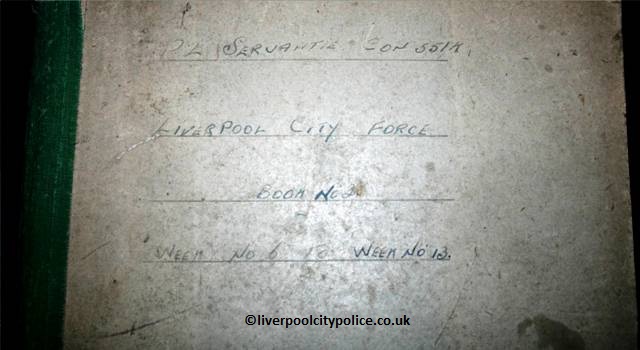 SERVANTIE CON 551K.
LIVERPOOL CITY FORCE
BOOK No 2.
WEEK No 6 TO WEEK No 13.
©liverpoolcitypolice.co.uk